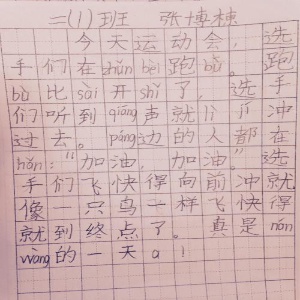 二(1)班 张博栋
今天运动会,选
手们在zhǔn bèi跑bù。跑
bù比sài开shǐ了,选手
们听到qiāng声就lì jí冲
过去。páng边的人都在
hǎn:“加油,加油。”选
手们飞快得向前冲就
像一只鸟一样飞快得
就到终点了。真是nán
wàng的一天a!